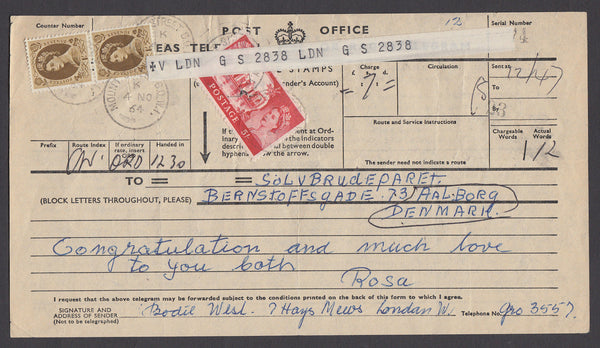 POST OFFICE
Counter Number
Serial Number
12
EAS TELE
+V LDN G S 2838 LDN G S 2838
STAMPS
Charge
Circulation
Sent
"7"
ender's Account)
At
To
By
POSTAGE
5/-
MOUNT
K
4 NO
64
If th
at Ord-
inary
indicators
describ
d between double
hyphen
w the arrow.
Route and Service instructions
Chargeable Words
Actual Words
Prefix
Route Index
If ordinary rate, insert
Handed in
ORD
1230
The sender need not indicate a route
1/2
TO SØLVBRUDEPARET.
(BLOCK LETTERS THROUGHOUT, PLEASE) BERNSTOFFSGADE. 73/AALBORG
DENMARK.
Congratulation and much love
to you both
Rosa
I request that the above telegram may be forwarded subject to the conditions printed on the back of this form to which I agree.
SIGNATURE AND ADDRESS OF SENDER Bodil West. 7 Hays Mews London W. Telephone No. Gro 3557.
(Not to be telegraphed)